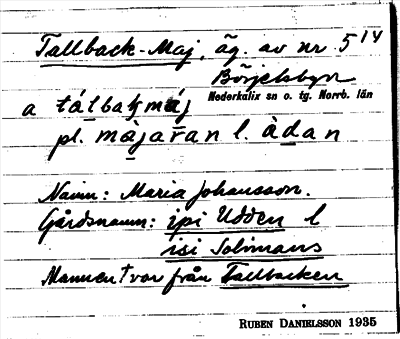 Tallback-Maj, äg. av nr 5¹⁴
Börjelsbyn
Nederkalix sn o. tg. Norrb. län
a tálbakmáj
pl. màjaran l. àdan
Namn: Maria Johansson.
Gårdsnamn: ipi Udden l
isi Solimans
Mannen † var från Tallbacken
RUBEN DANIELSSON 1935